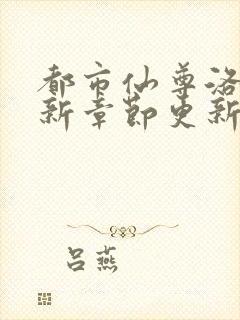 都市仙尊洛
新章节更新
吕燕